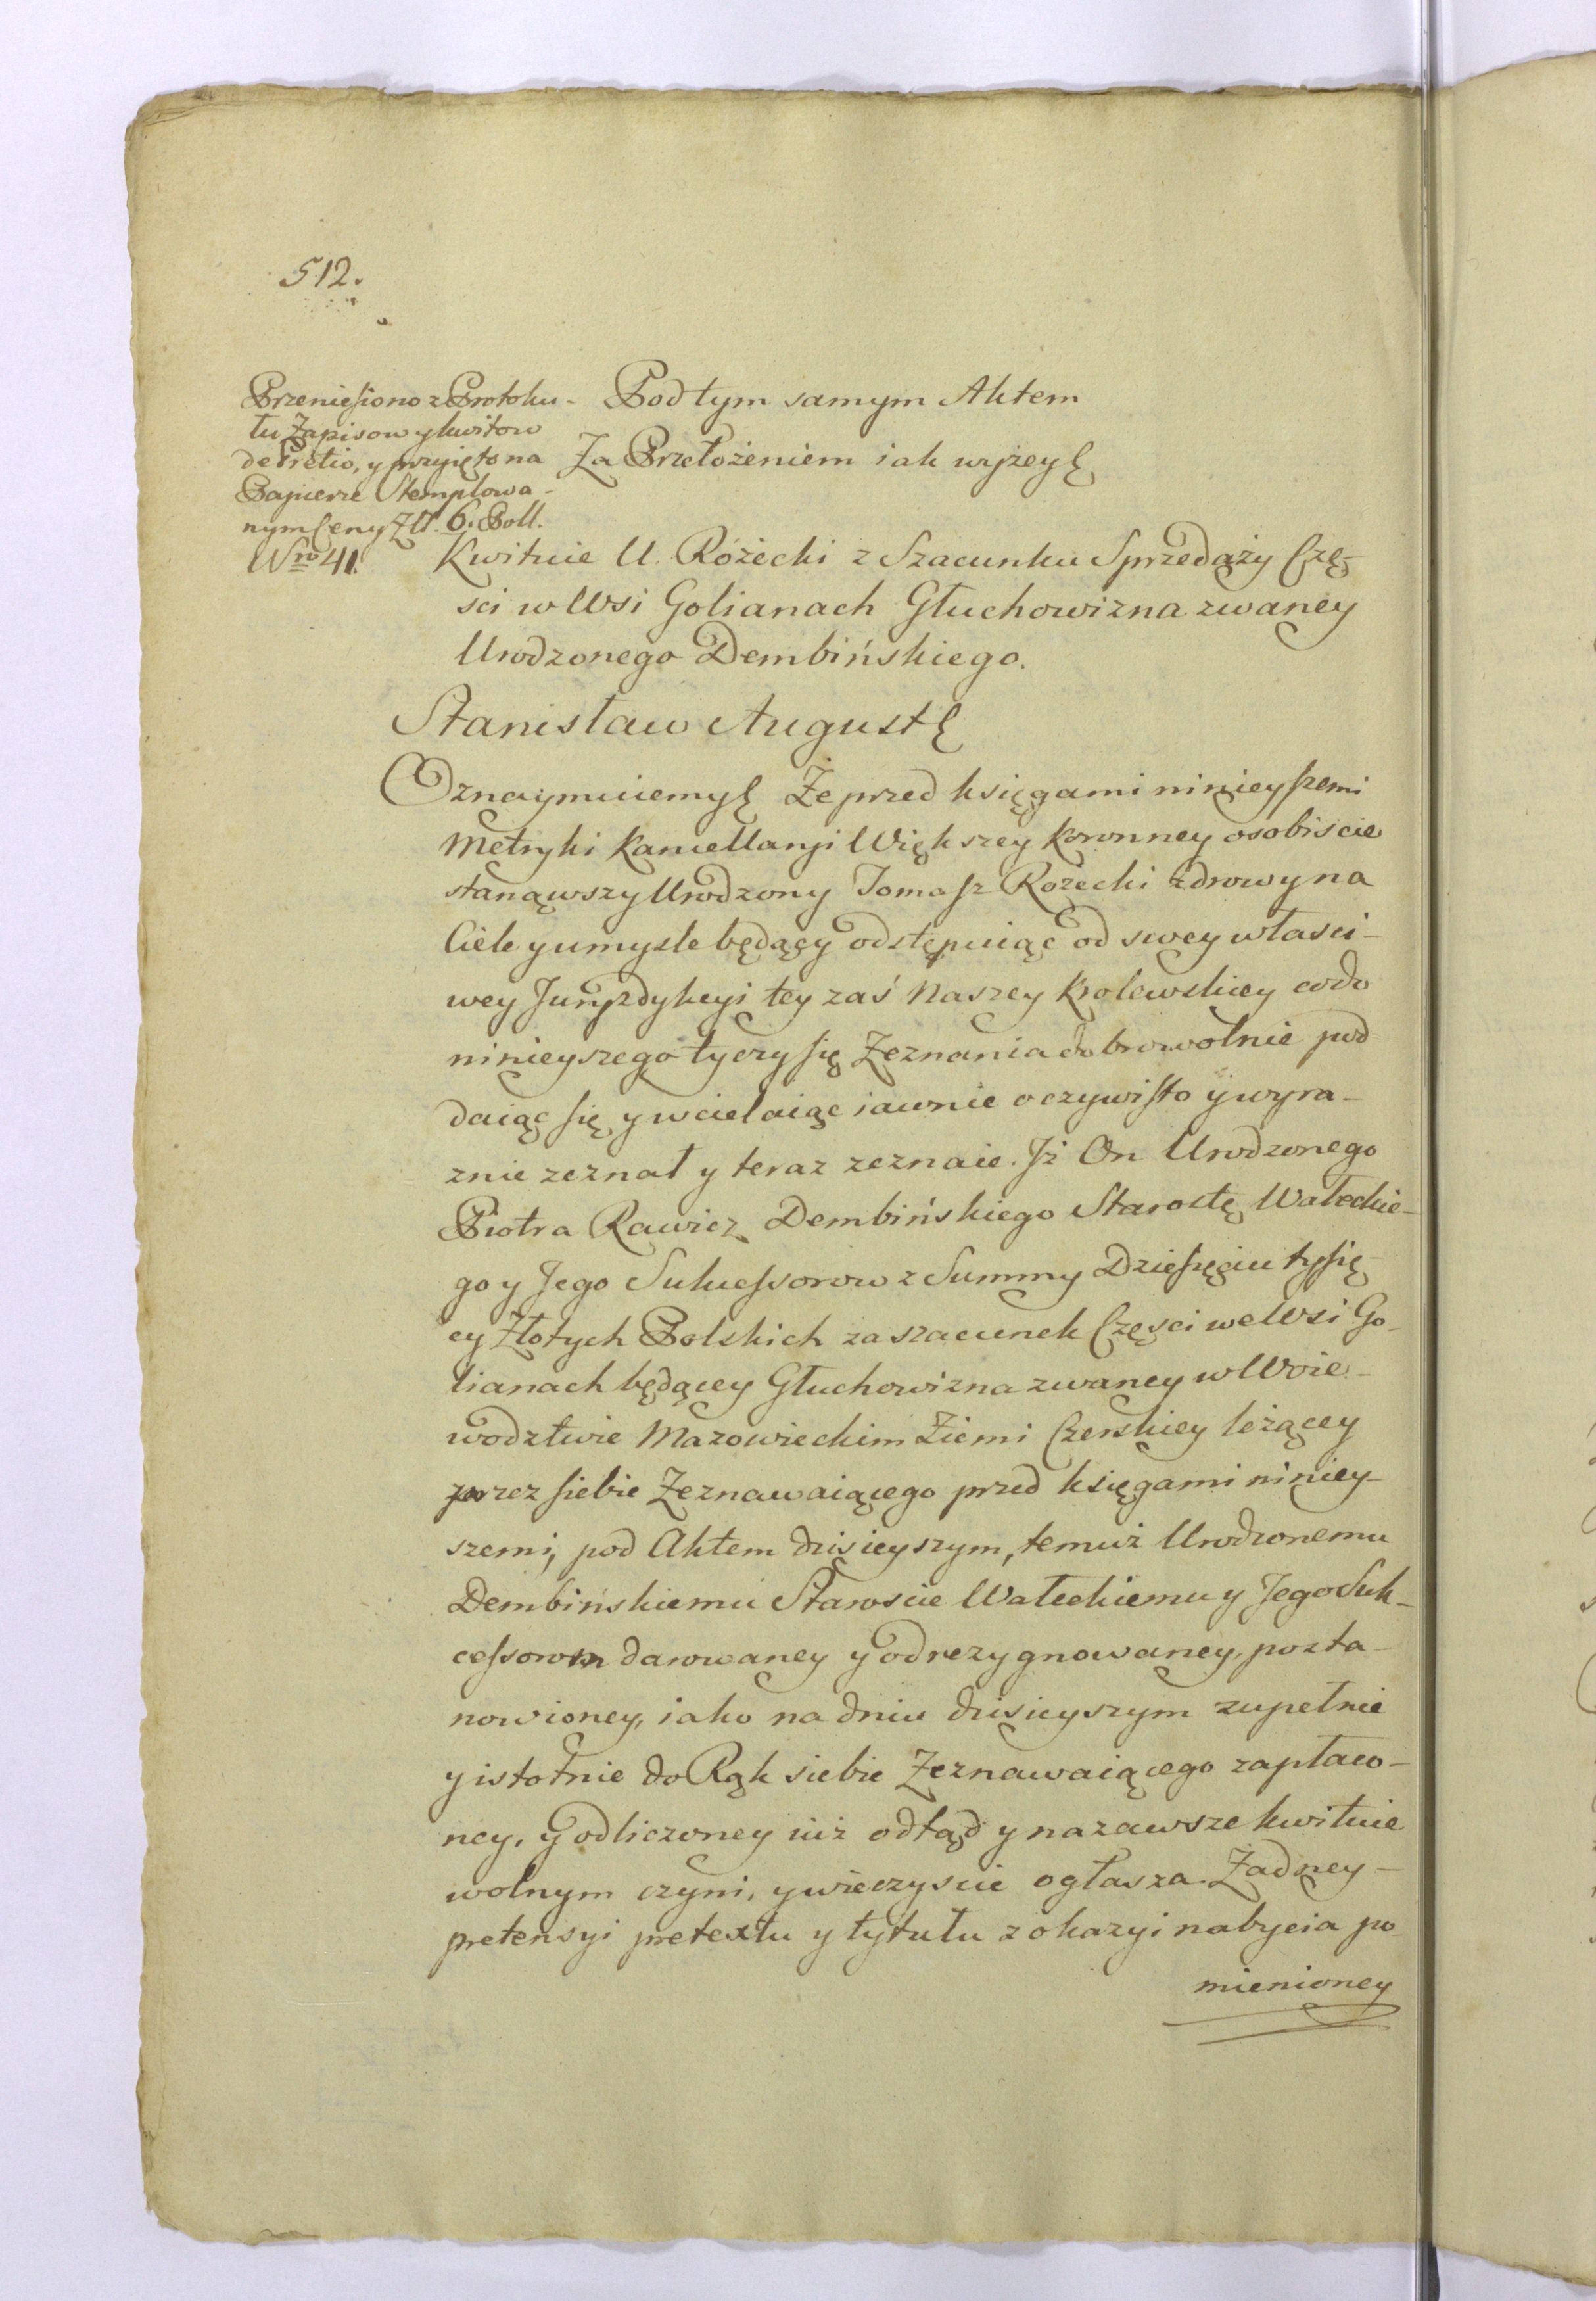 512.
Przeniesiono z Protoku-
łu Zapisow y kwitow
de Pretio, y przyięto na
Papierze Stemplowa-
nym Ceny Złł. 6. Poll.
Nro 41.
Pod tym samym Aktem
Za Przełożeniem iak wyżey
Kwituie U. Rożecki z Szacunku Sprzedaży Czę-
sci w Wsi Golianach Głuchowizna zwaney
Urodzonego Dembińskiego.
Stanisław August
Oznaymuiemy Że przed księgami ninieyszemi
Metryki Kancellaryi Większey Koronney osobiscie
stanąwszy Urodzony Tomasz Rożecki zdrowy na
Ciele y umysle będący odstępuiąc od swey własci-
wey Juryzdykcyi tey zaś Naszey Krolewskiey co do
ninieyszego tyczy się Zeznania dobrowolnie pod
daiąc się y wcielaiąc iawnie oczywisto y wyra-
znie zeznał y teraz zeznaie. Iż On Urodzonego
Piotra Rawicz Dembińskiego Starostę Wałeckie-
go y Jego Sukcessorow z Summy Dziesięciu tysię-
cy Złotych Polskich za szacunek Częsci we Wsi Go-
lianach będącey Głuchowizna zwaney w Woie-
wodztwie Mazowieckim Ziemi Czerskiey leżącey
przez siebie Zeznawaiącego przed księgami niniey-
szemi, pod Aktem dzisieyszym, temuż Urodzonemu
Dembińskiemu Staroscie Wałeckiemu y Jego Suk-
cessorom darowaney y odrezygnowaney, posta-
nowioney, iako na dniu dzisieyszym zupełnie
y istotnie do Rąk siebie Zeznawaiącego zapłaco-
ney, y odliczoney iuż odtąd y nazawsze kwituie
wolnym czyni, y wieczyscie ogłasza. Żadney-
pretensyi pretextu y tytułu z okazyi nabycia po-
mienioney